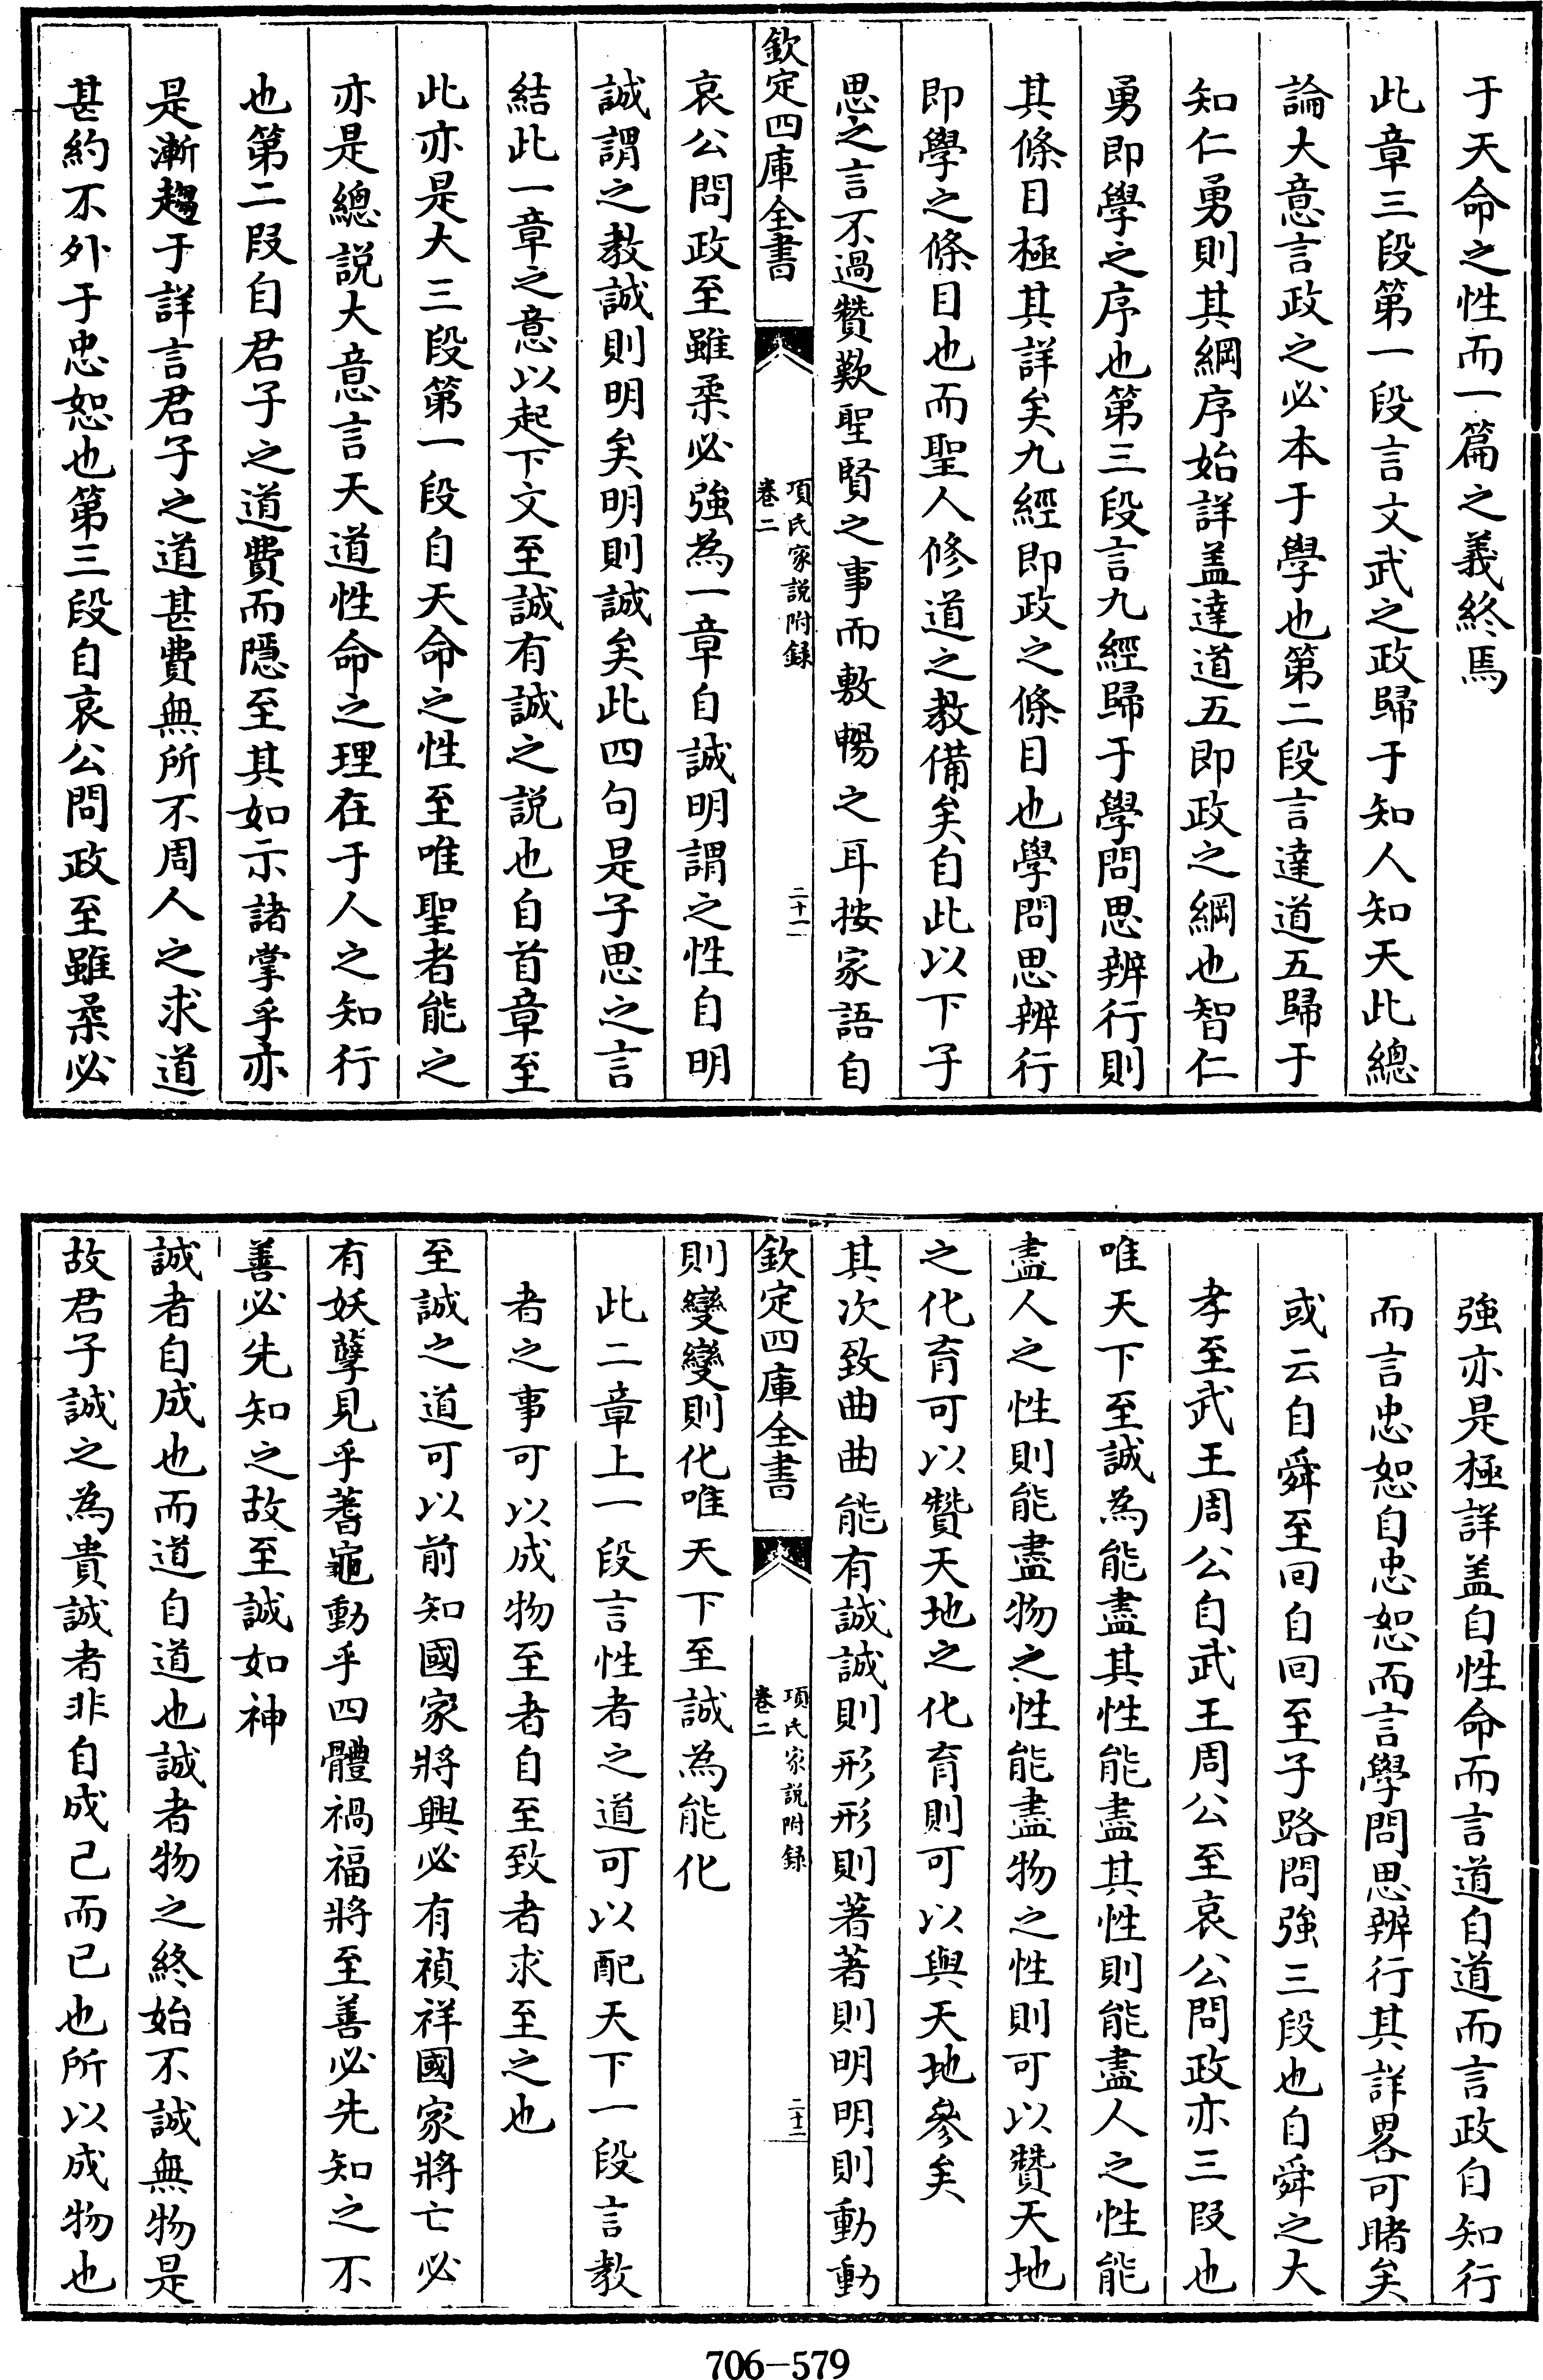 于天命之性而一篇之義終焉
此章三段第一段言文武之政歸于知人知天此總
論大意言政之必本于學也第二段言達道五歸于
知仁勇則其綱序始詳盖達道五即政之綱也智仁
勇即學之序也第三段言九經歸于學問思辨行則
其條目極其詳矣九經即政之條目也學問思辨行
即學之條目也而聖人修道之教備矣自此以下子
思之言不過贊歎聖賢之事而敷暢之耳按家語自
欽定四庫全書
項氏家説附録
卷二
二十一
哀公問政至雖柔必強為一章自誠明謂之性自明
誠謂之教誠則明矣明則誠矣此四句是子思之言
結此一章之意以起下文至誠有誠之説也自首章至
此亦是大三段第一段自天命之性至唯聖者能之
亦是總説大意言天道性命之理在于人之知行
也第二段自君子之道費而隱至其如示諸掌乎亦
是漸趨于詳言君子之道甚費無所不周人之求道
甚約不外于忠恕也第三段自哀公問政至雖柔必
強亦是極詳盖自性命而言道自道而言政自知行
而言忠恕自忠恕而言學問思辨行其詳畧可睹矣
或云自舜至回自回至子路問強三段也自舜之大
孝至武王周公自武王周公至哀公問政亦三段也
唯天下至誠為能盡其性能盡其性則能盡人之性能
盡人之性則能盡物之性能盡物之性則可以贊天地
之化育可以贊天地之化育則可以與天地參矣
其次致曲曲能有誠誠則形形則著著則明明則動動
欽定四庫全書
項氏家説附録
卷二
二十二
則變變則化唯天下至誠為能化
此二章上一段言性者之道可以配天下一段言教
者之事可以成物至者自至致者求至之也
至誠之道可以前知國家將興必有禎祥國家將亡必
有妖孽見乎蓍龜動乎四體禍福將至善必先知之不
善必先知之故至誠如神
誠者自成也而道自道也誠者物之終始不誠無物是
故君子誠之為貴誠者非自成己而已也所以成物也
706-579